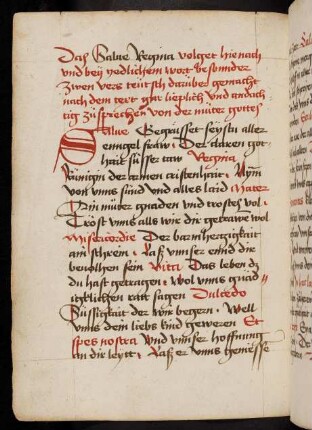 Das Salue Regina volget hie nach
vnd bey yedlichem wort besonder
zwen vers teutsch darüber gemacht
nach dem text gar lieplich vnd andach
tig zu sprechen von der müter gottes
Salue Gegrüsset seystu aller
engel fraw . Der claren got
hait süsser taw Regina
künigin der armen cristenhait . Nym
von vnns sünd vnd alles laid Mater
Ein müter gnaden vnd trostes vol .
Tröst vnns alls wir dir getrawe wol
Misericordie Der barmhertzigkait
ain schrein . Laß vnnser eennd dir
beuolhen sein Vitta Das leben du
du hast getragen . wol vnns gnäd
igklichen ratt sagen Dulcedo
Süssigkait der wir begern . Wöll
vnns dein liebs kind geweren Et
spes nostra vnd vnnser hoffnung
an dir leytt . Laß er vnns geniesse